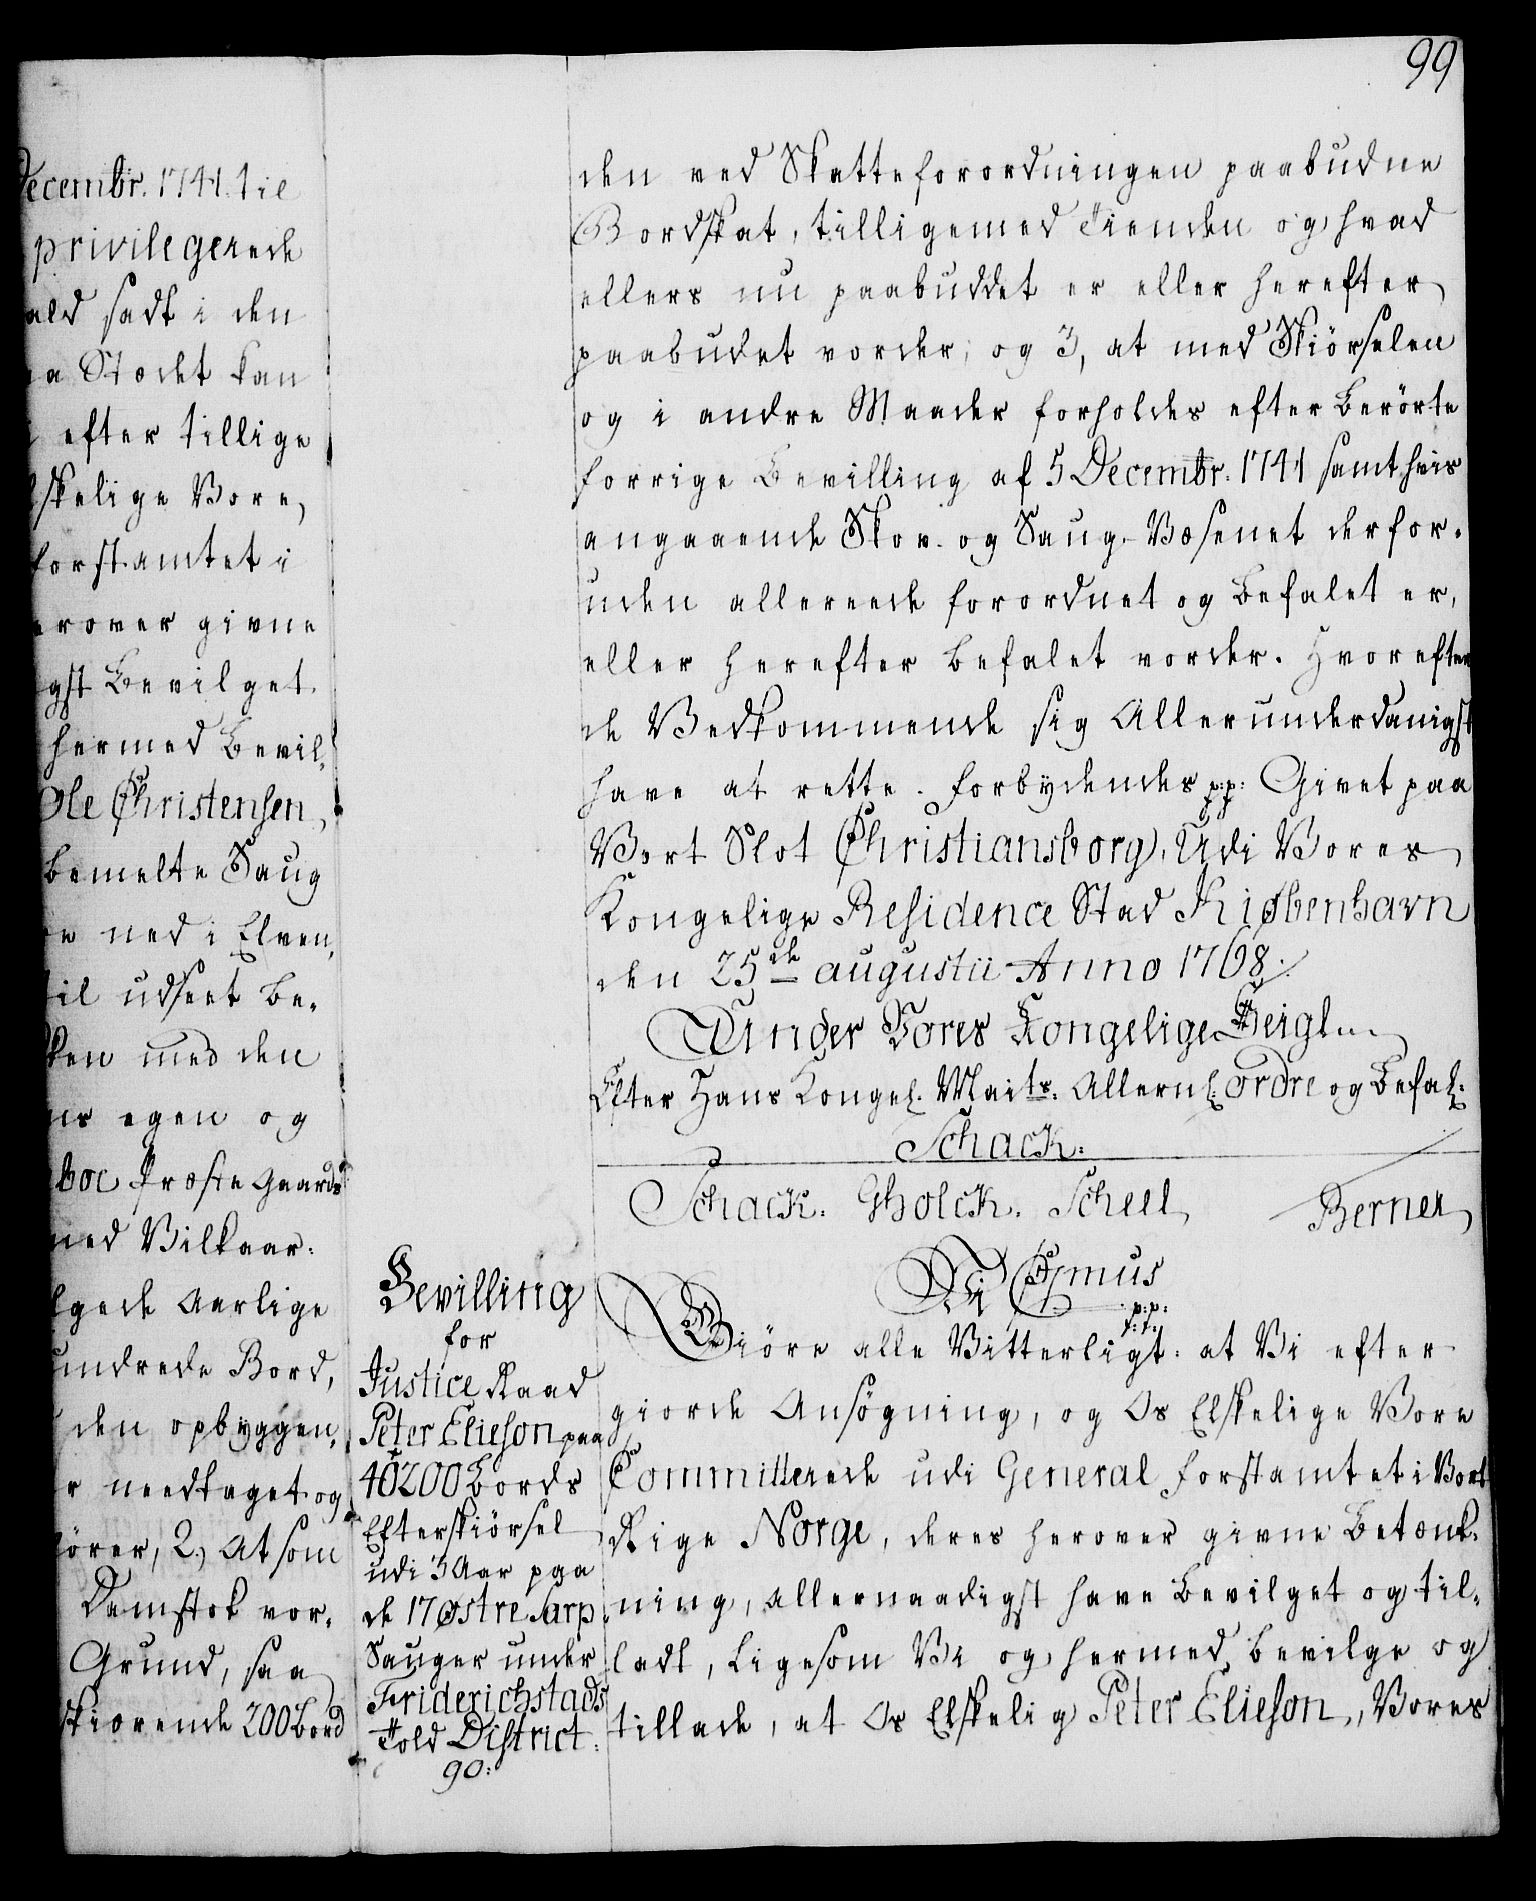 99
Decembr. 1741. til
privilegerede
ald sadt i den
Stædet kan
efter tillige
lskelige Vore,
Forstamtet i
erover givne
gst Bevilget
hermed Bevil-
Ole Christensen,
bemelte Saug
ned i Elven,
til udseet be-
ken med den
egen og
Præste Gaards
med Vilkaar:
lgede Aarlige
undrede Bord,
den opbyggen,
needtaget og
iörer, 2, At som
Damstok vor-
Grund, saa
skiærende 200 Bord
den ved Skatteforordningen paabudne
Bordskat, tilligemed Tienden og hvad
ellers nu paabuddet er eller herefter
paabudet vorder; og 3, at med Skiörselen
og i andre Maader forholdes efter berörte
forrige Bevilling af 5 Decembr. 1741 samt hvis
angaaende Skov- og Saug-Væsenet derfor-
uden allereede forordnet og befalet er,
eller herefter befalet vorder. Hvorefter
de Vedkommende sig Allerunderdanigst
have at rette. Forbydendes p:p: Givet paa
Vort Slot Christiansborg, Udi Vores
Kongelige Residence Stad Kiøbenhavn
den 25de augustii Anno 1768.
Under Vores Kongelige Seigl...
Efter Hans Kongel. Maits. Allern. ordre og Befal.
Schack.
Schack. Gholck. Scheel, Berner
Vi Chmus
p:p:
Bevilling
for
Justice Raad
Peter Elieson paa
40200 Bords
Efterskiörsel
udi 3 Aar paa
de 17 østre Sarp
Sauger under
Friderichstads
Told District.
90:
Giöre alle Vitterligt: at Vi efter
giorde Ansögning, og Os Elskelige Vore
Committerede udi General Forstamtet i Vort
Rige Norge, deres herover givne Betænk-
ning, allernaadigst have bevilget og til-
ladt, ligesom Vi og hermed bevilge og
tillade, at Os Elskelig Peter Elieson, Vores